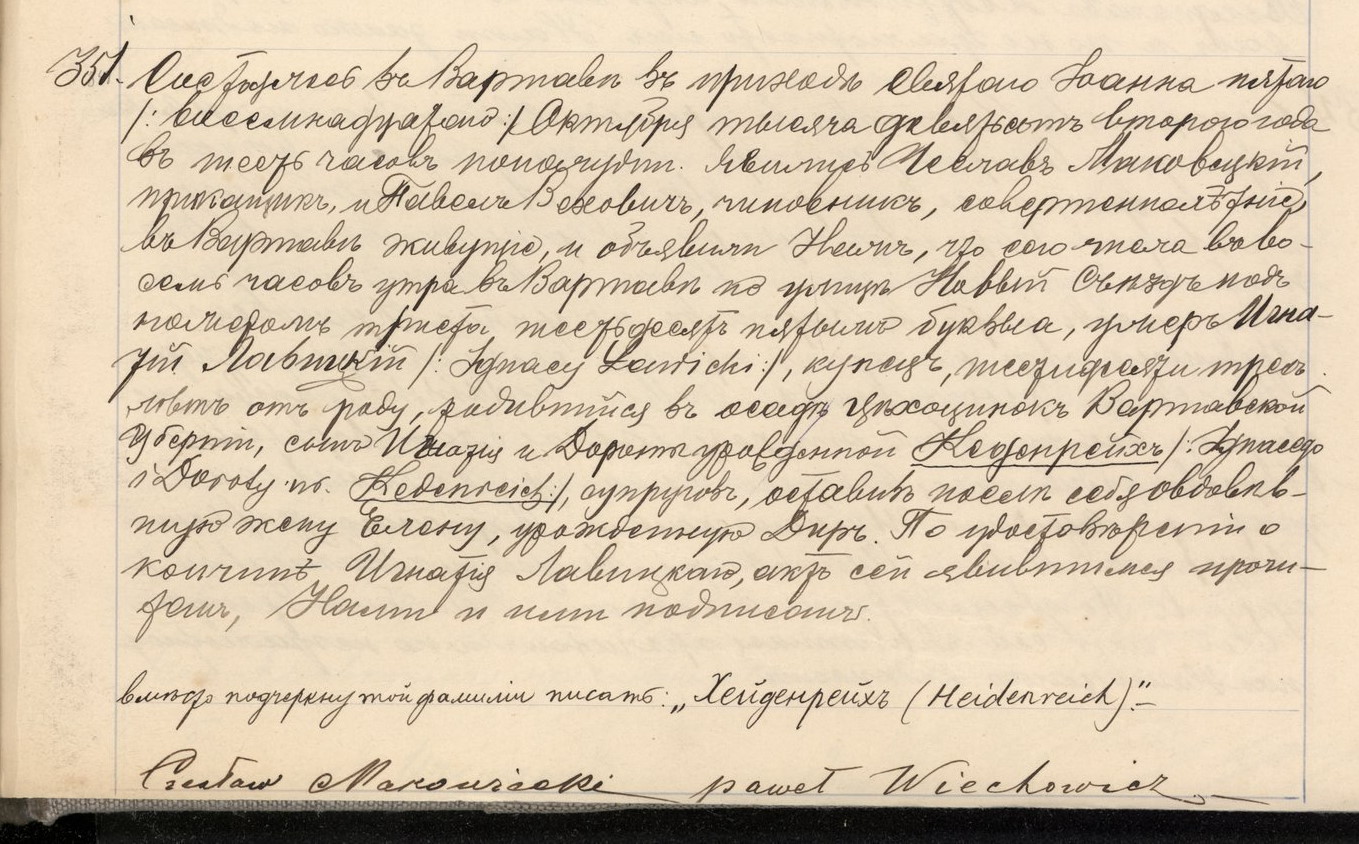 351. Состоялось въ Варшавѣ въ приходѣ Святаго Іоанна пятаго
/: восемнадцатаго :/ Октября тысяча девятьсотъ втораго года
въ шесть часовъ пополудни. Явились Чеславъ Маковецкій,
прикащикъ, и Павелъ Вѣховичъ, чиновникъ, совершеннолѣтніе
въ Варшавѣ живущіе, и объявили Намъ, что сего числа въ во-
семь часовъ утра въ Варшавѣ по улицѣ Новый Съѣздъ подъ
номеромъ триста шестьдесятъ пятымъ буква а, умеръ Игна-
тій Лавицкій /: Ignacy Lawicki :/, купецъ, шестидесяти трехъ
лѣтъ отъ роду, родившійся въ осадѣ Цѣхоцинокъ Варшавской
Губерніи, сынъ Игнатія и Дороты урожденной Кеденрейхъ /: Ignacego
i Doroty ur. Kedenreich :/, супруговъ, оставивъ послѣ себя овдовѣв-
шую жену Елену, урожденную Диръ. По удостовѣреніи о
кончинѣ Игнатія Лавицкаго, актъ сей явившимся прочи-
танъ, Нами и ими подписанъ.
вмѣсто подчеркнутой фамиліи писать: „Хейденрейхъ (Heidenreich)“.—
Czesław Makowiecki paweł Wiechowicz